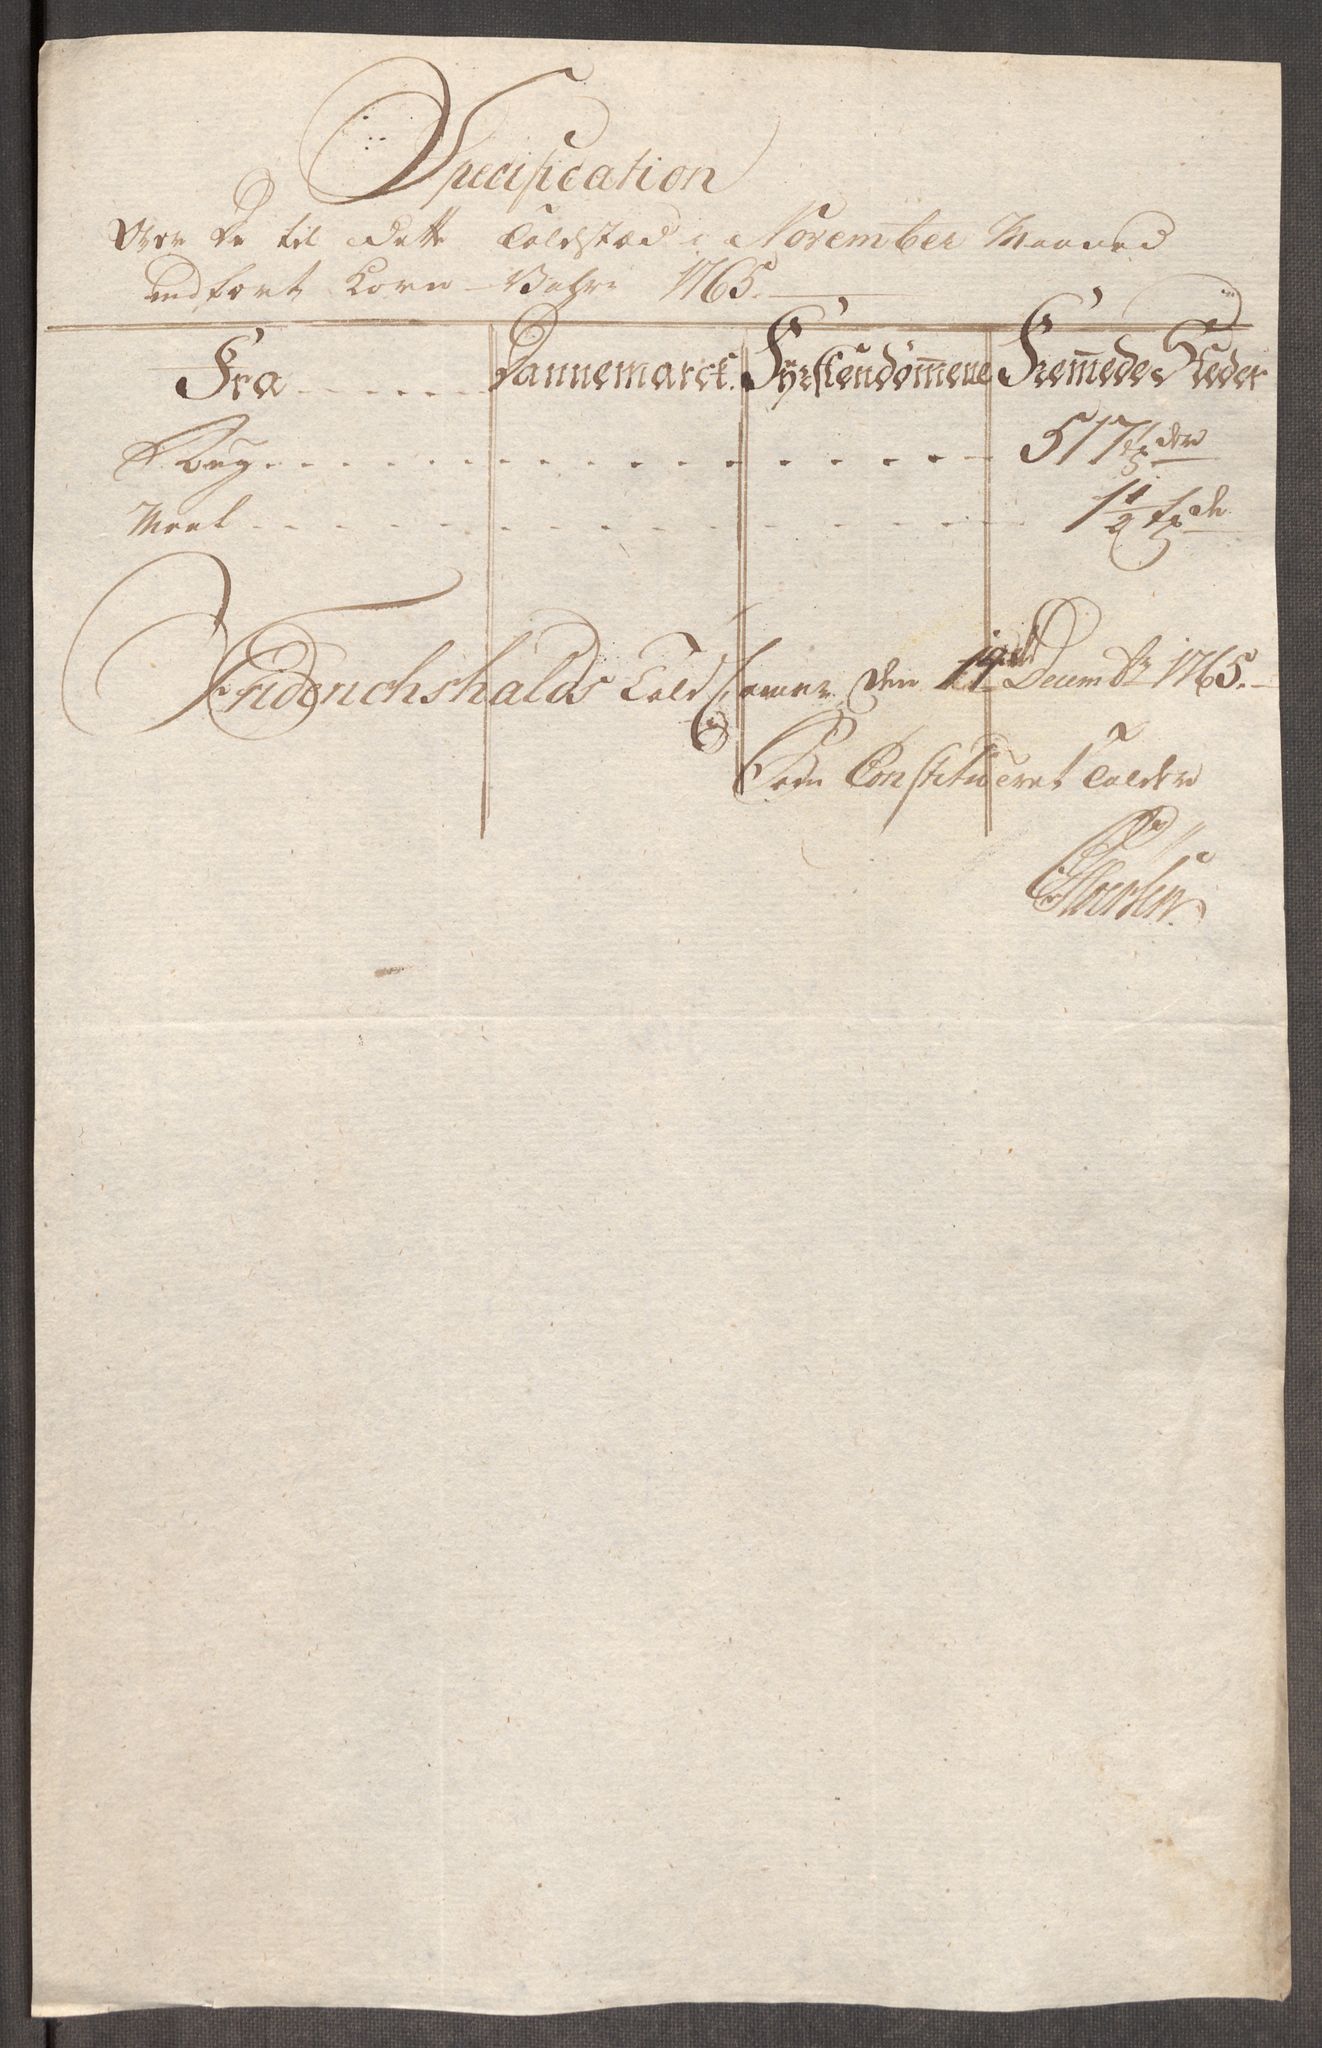 Specification
Over De til dette Toldsted i November Maaned
indført Korn-Vahre 1765.
Fra Dannemarck. Fyrstendømmene Fremmede Steder
Rug 517 tdr
Meel 1 1/2 tde
Friderichshalds Told Camer den Decembr 1765.
Som Constitueret Tolder